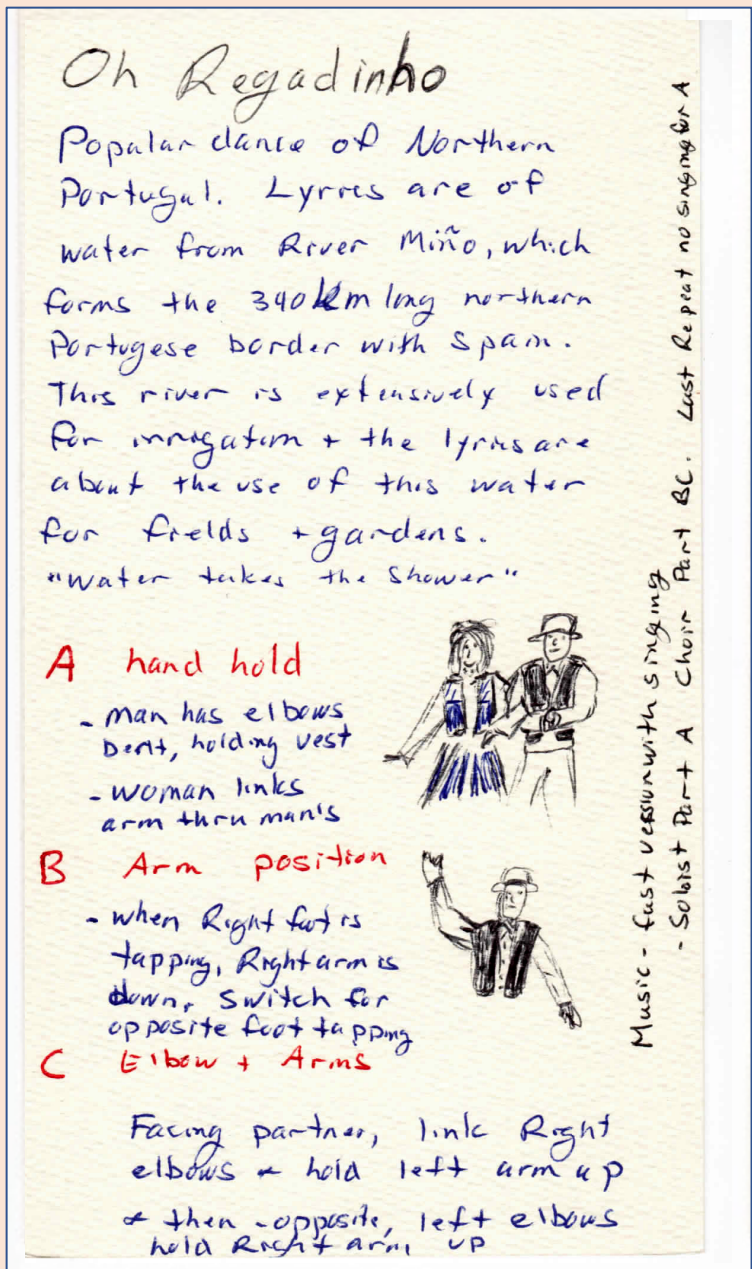 Oh Regadinho
Popular dance of Northern
Portugal. Lyrics are of
water from River Miño, which
forms the 340km long northern
Portugese border with Spain.
This river is extensively used
for irrigation + the lyrics are
about the use of this water
for fields + gardens.
"Water takes the Shower"
A hand hold
- man has elbows
bent, holding vest
- woman links
arm thru man's
B Arm position
- when Right foot is
tapping, Right arm is
down, switch for
opposite foot tapping
C Elbow + Arms
Facing partner, link Right
elbows + hold left arm up
+ then -opposite, left elbows
hold Right arm up
Music - fast version with singing
- Soloist Part A Choir Part BC. Last Repeat no singing for A